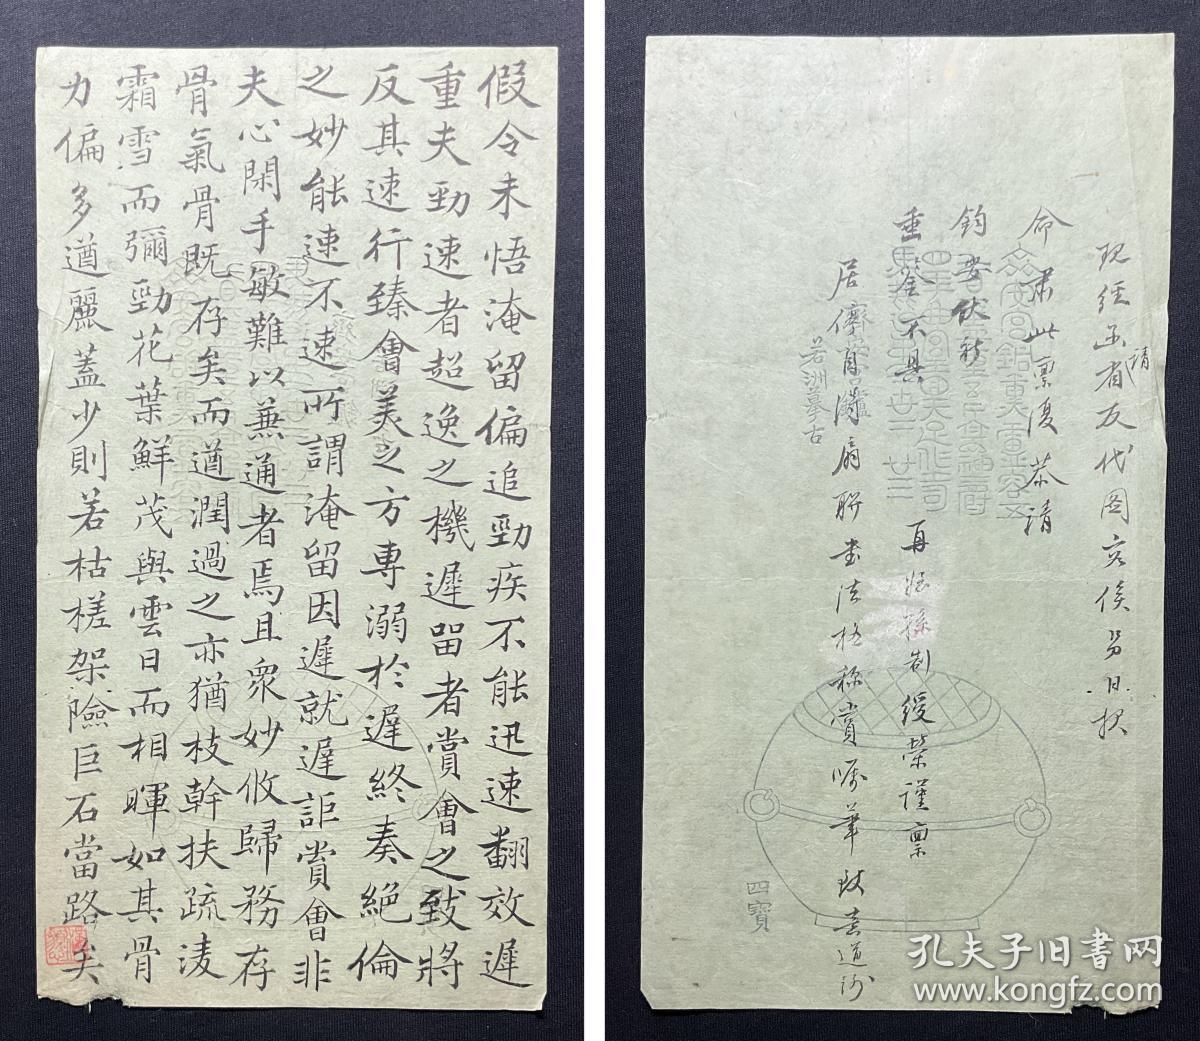 假令未悟淹留偏追勁疾不能迅速翻效遲
重夫勁速者超逸之機遲留者賞會之致將
反其速行臻會美之方專溺於遲終奏絕倫
之妙能速不速所謂淹留因遲就遲詎賞會非
夫心閑手敏難以兼通者焉且衆妙攸歸務存
骨氣骨既存矣而遒潤過之亦猶枝幹扶疏淩
霜雪而彌勁花葉鮮茂與雲日而相暉如其骨
力偏多遒麗蓋少則若枯槎架險巨石當路矣
現經函請省友代圖容俟另日报
命肃此禀復恭請
鈞安伏祈
垂詧不具
再
緩榮謹禀
居
扇聯書法格称賞嘱筆致意道謝
若洲摹古
四寶
孔夫子旧书网
www.kongfz.com